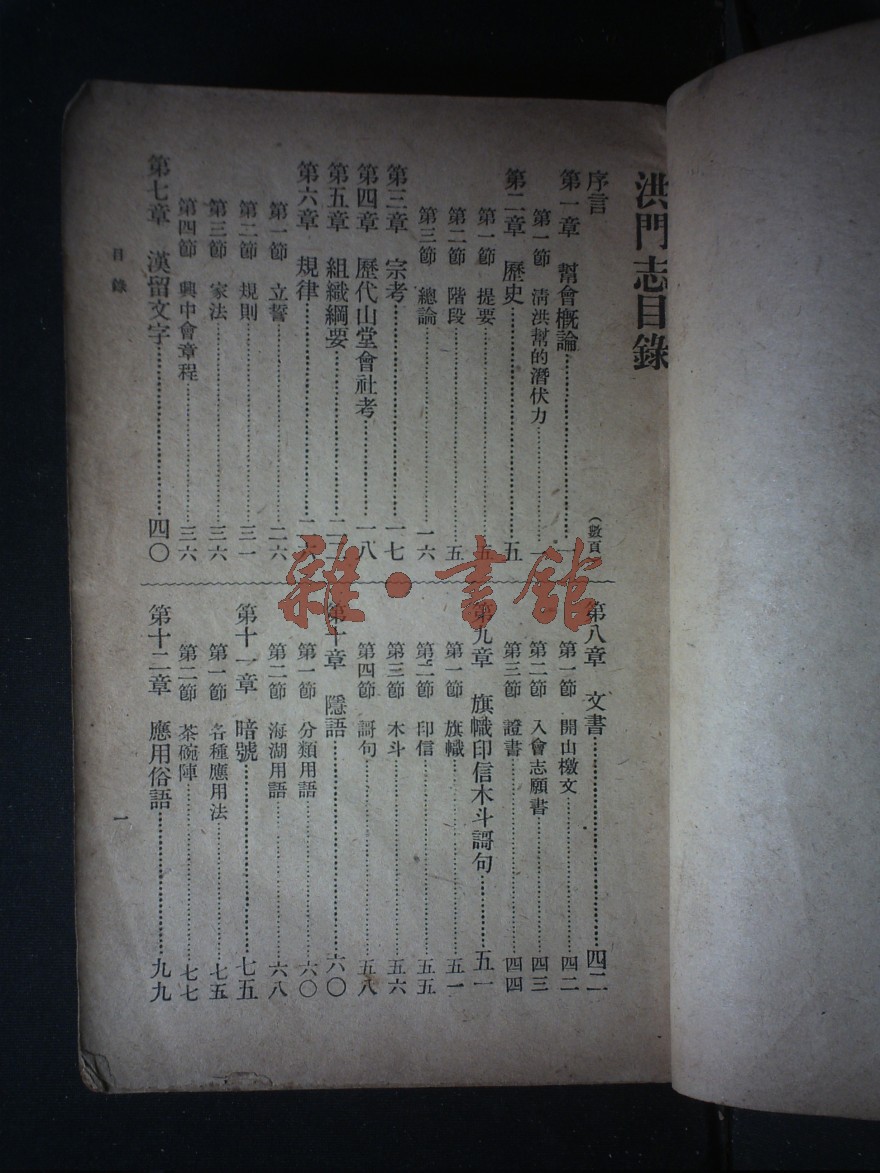 洪門志目錄
序言
(數頁
第一章 幫會概論 一
第一節 淸洪幫的潛伏力 一
第二章 歷史 五
第一節 提要 五
第二節 階段 五
第三節 總論 一六
第三章 宗考 一七
第四章 歷代山堂會社考 一八
第五章 組織綱要
第六章 規律
第一節 立誓 二六
第二節 規則 三一
第三節 家法 三六
第四節 興中會章程 三六
第七章 漢留文字 四〇
第八章 文書 四二
第一節 開山檄文 四二
第二節 入會志願書 四三
第三節 證書 四四
第九章 旗幟印信木斗謌句 五一
第一節 旗幟 五一
第二節 印信 五五
第三節 木斗 五六
第四節 謌句 五八
第十章 隱語 六〇
第一節 分類用語 六〇
第二節 海湖用語 六八
第十一章 暗號 七五
第一節 各種應用法 七五
第二節 茶碗陣 七七
第十二章 應用俗語 九九
目錄
一
雜·書館